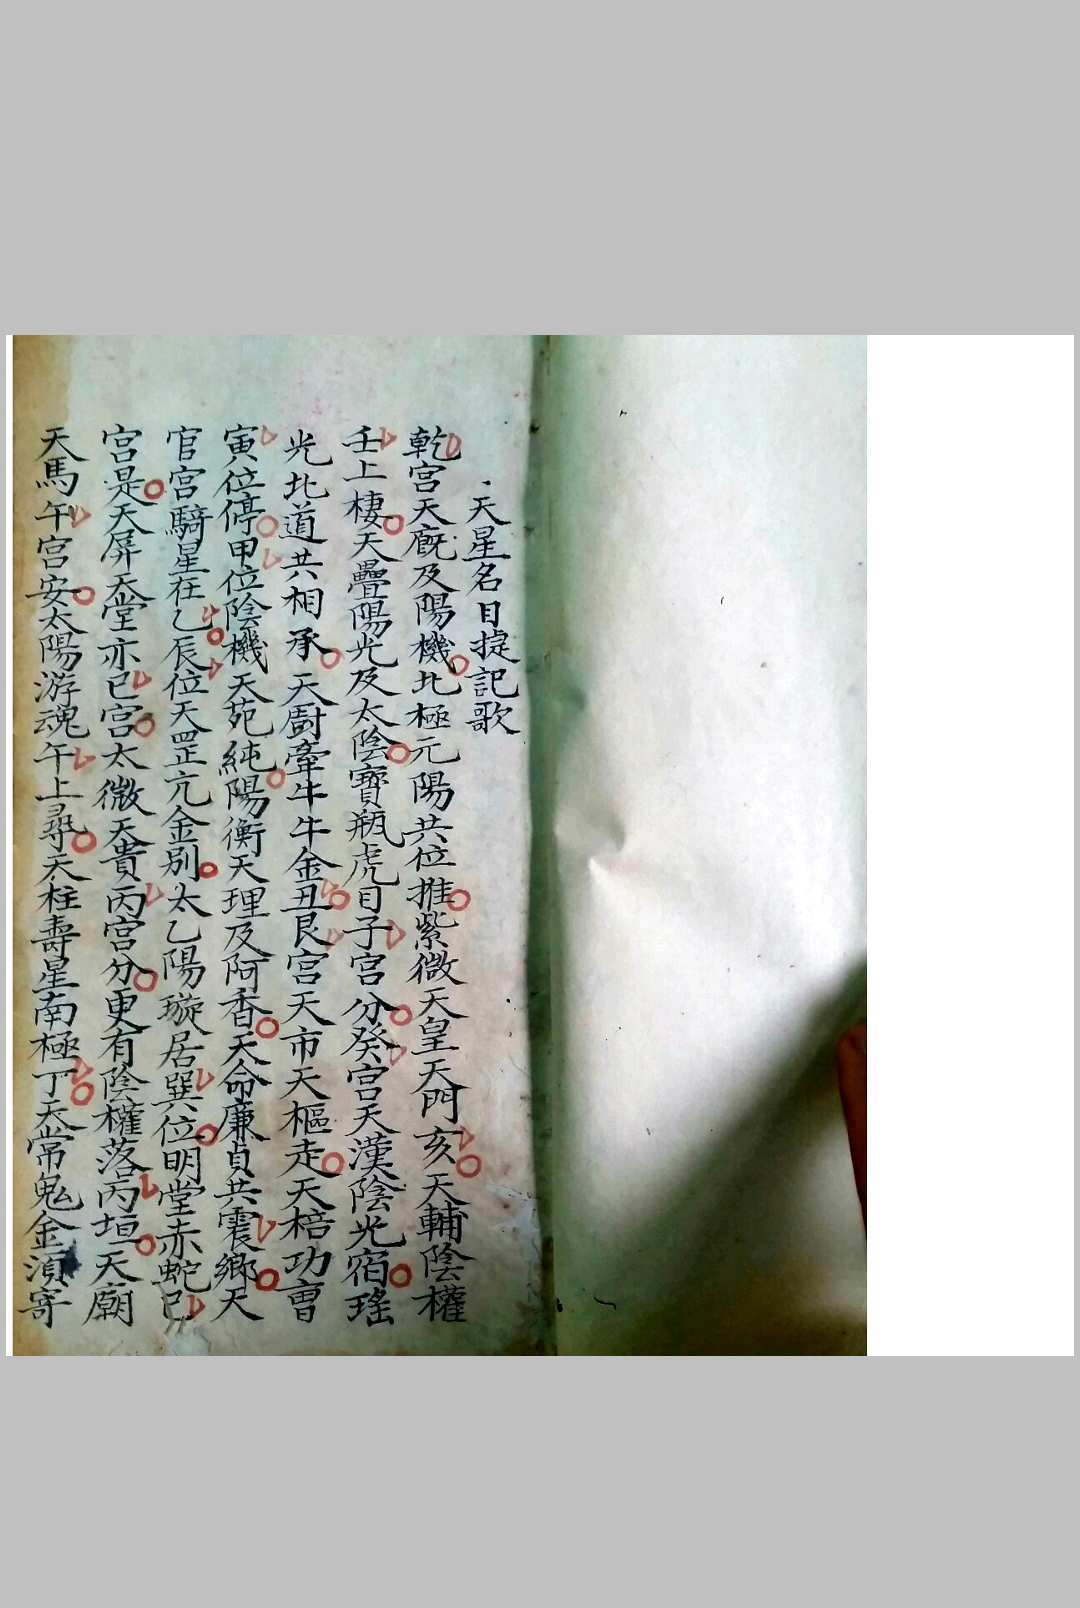 天星名目提記歌
乾宮天廐及陽機北極元陽共位推紫微天皇天門亥天輔陰權
壬上棲天壘陽光及太陰寶瓶虎目子宮分癸宮天漢陰光宿瑤
光北道共相承天厨牽牛牛金丑艮宮天市天樞走天棓功曹
寅位停甲位陰機天苑純陽衡天理及阿香天命廉貞共震鄉天
官宮騎星在乙辰位天罡亢金别太乙陽璇居巽位明堂赤蛇巳
宮是天屏天堂亦巳宮太微天貴丙宮分更有陰權落丙垣天廟
天馬午宮安太陽游魂午上尋天柱壽星南極丁天常鬼金須寄